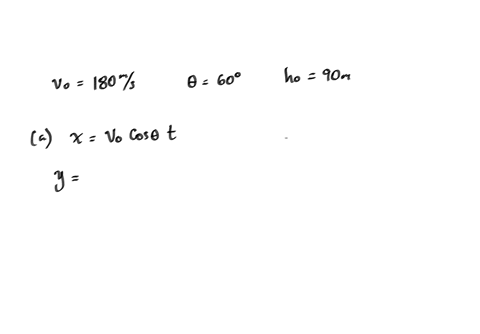 v₀ = 180 m/s θ = 60° h₀ = 90m
(a) x = v₀ Cosθ t
y =